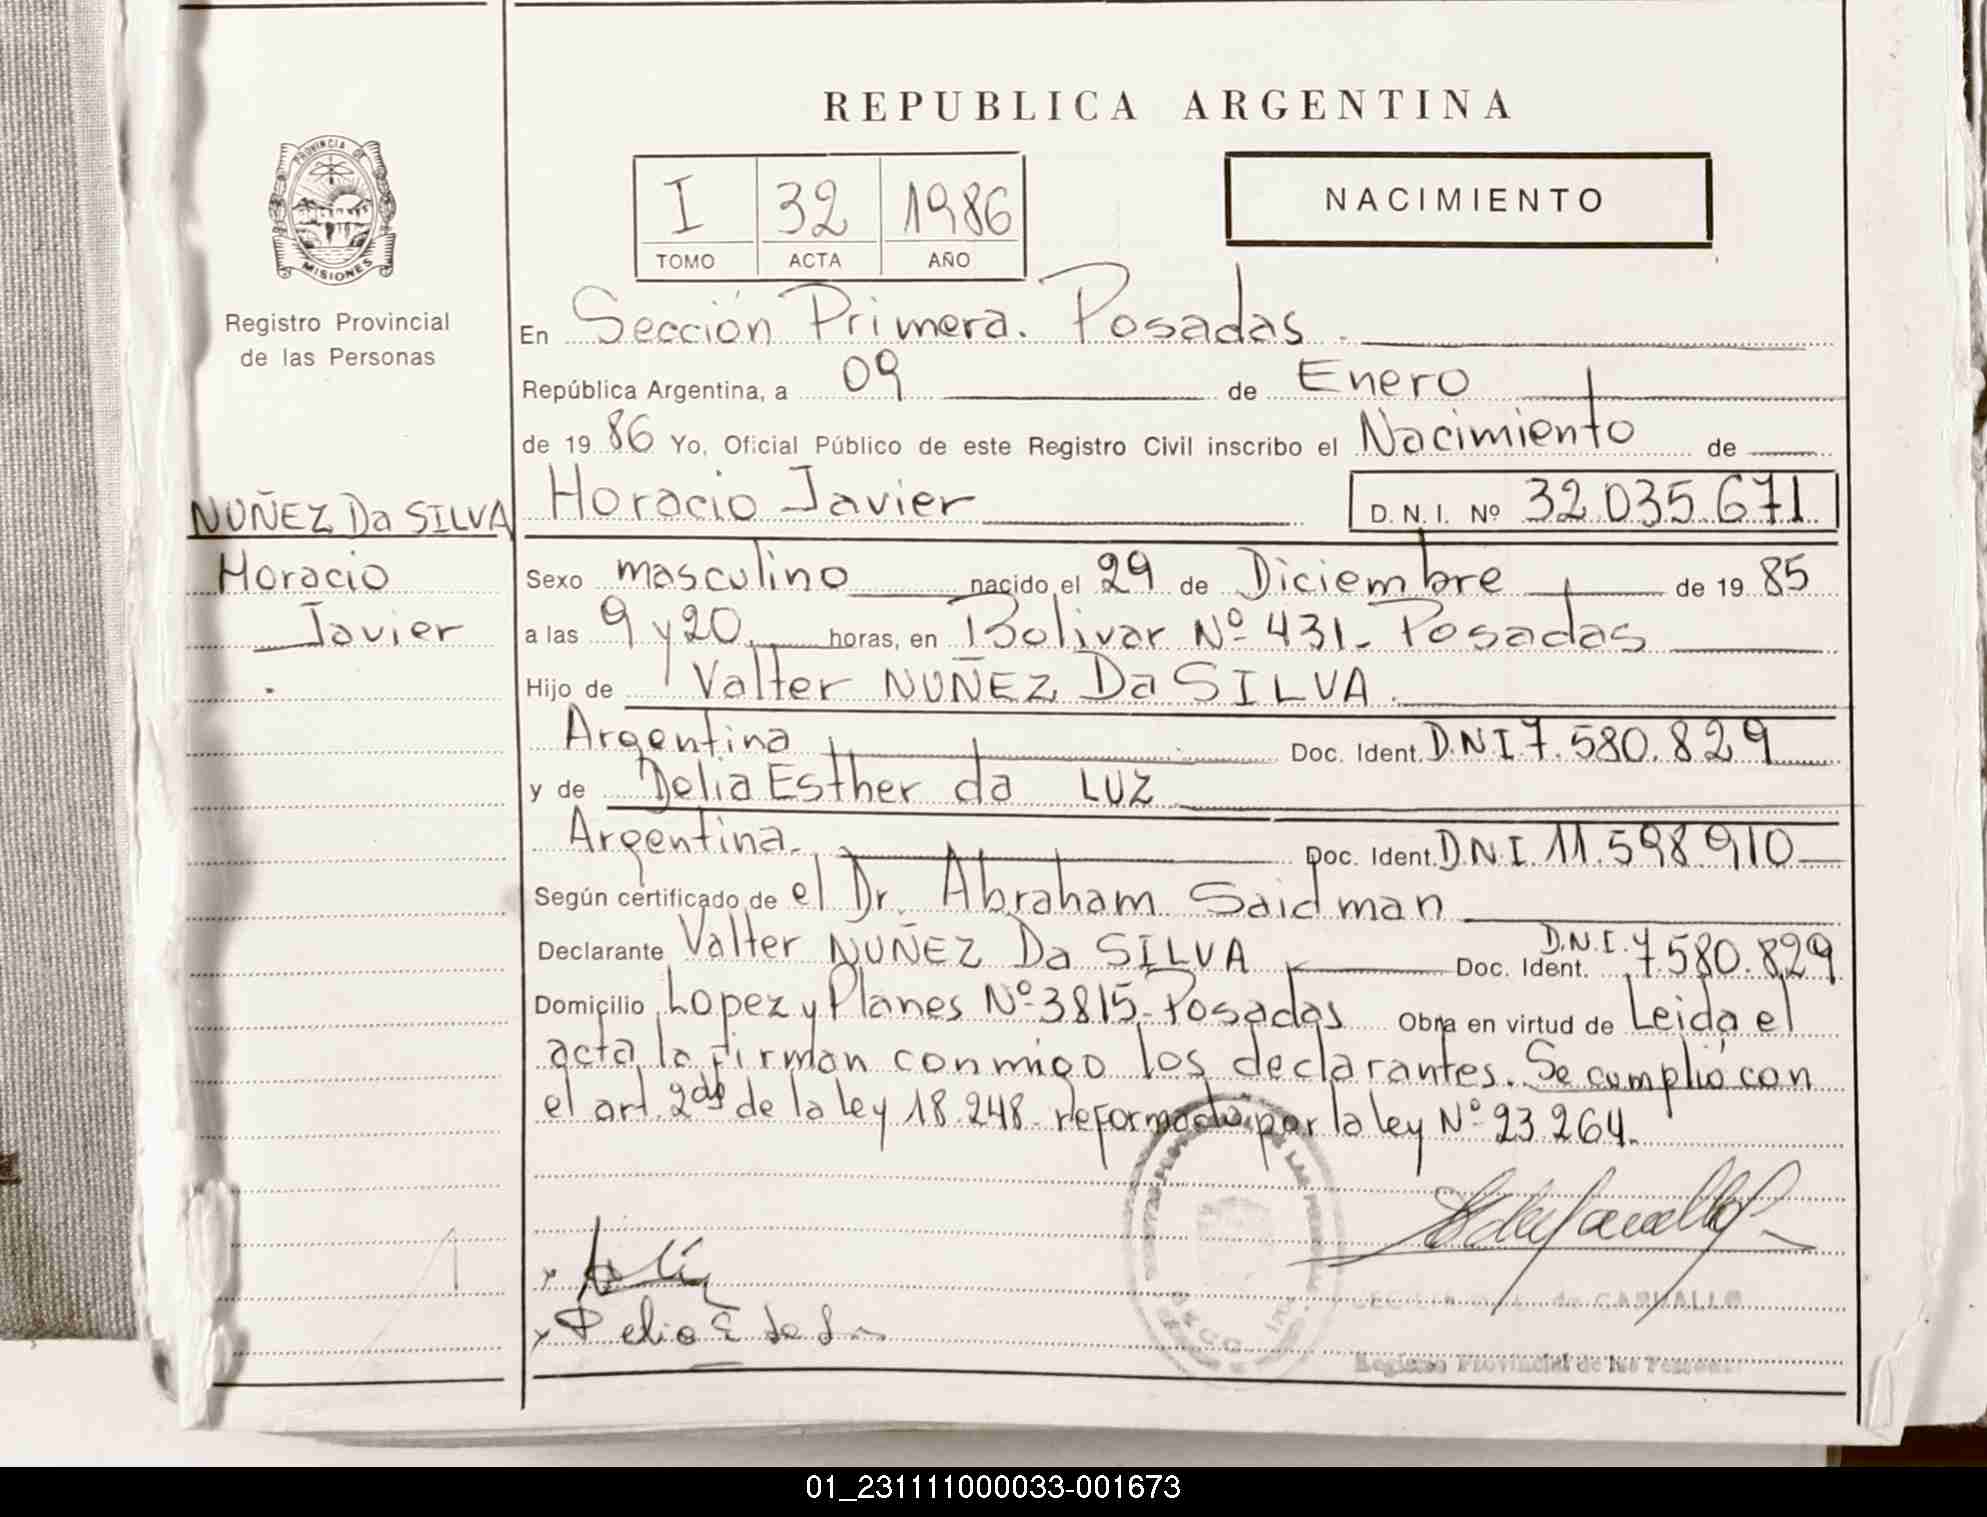 REPUBLICA ARGENTINA
PROVINCIA DE
MISIONES
Registro Provincial
de las Personas
I 32 1986
TOMO ACTA AÑO
NACIMIENTO
En Sección Primera. Posadas
República Argentina, a 09 de Enero
de 1986 Yo, Oficial Público de este Registro Civil inscribo el Nacimiento de
NUÑEZ Da SILVA
Horacio
Javier
Horacio Javier D.N.I. Nº 32.035.671
Sexo masculino nacido el 29 de Diciembre de 1985
a las 9 y 20 horas, en Bolivar Nº 431- Posadas
Hijo de Valter NUÑEZ Da SILVA
Argentina Doc. Ident. D.N.I 7.580.829
y de Delia Esther da LUZ
Argentina. Doc. Ident. D.N.I. 11.598910
Según certificado de el Dr. Abraham Saidman
Declarante Valter NUÑEZ Da SILVA Doc. Ident. D.N.I. 7.580.829
Domicilio Lopez y Planes Nº 3815- Posadas Obra en virtud de Leida el
acta la firman conmigo los declarantes. Se cumplió con
el art. 2do de la ley 18.248- reformada por la ley Nº 23.264.
de CARVALLO
Registro Provincial de las Personas
01_231111000033-001673